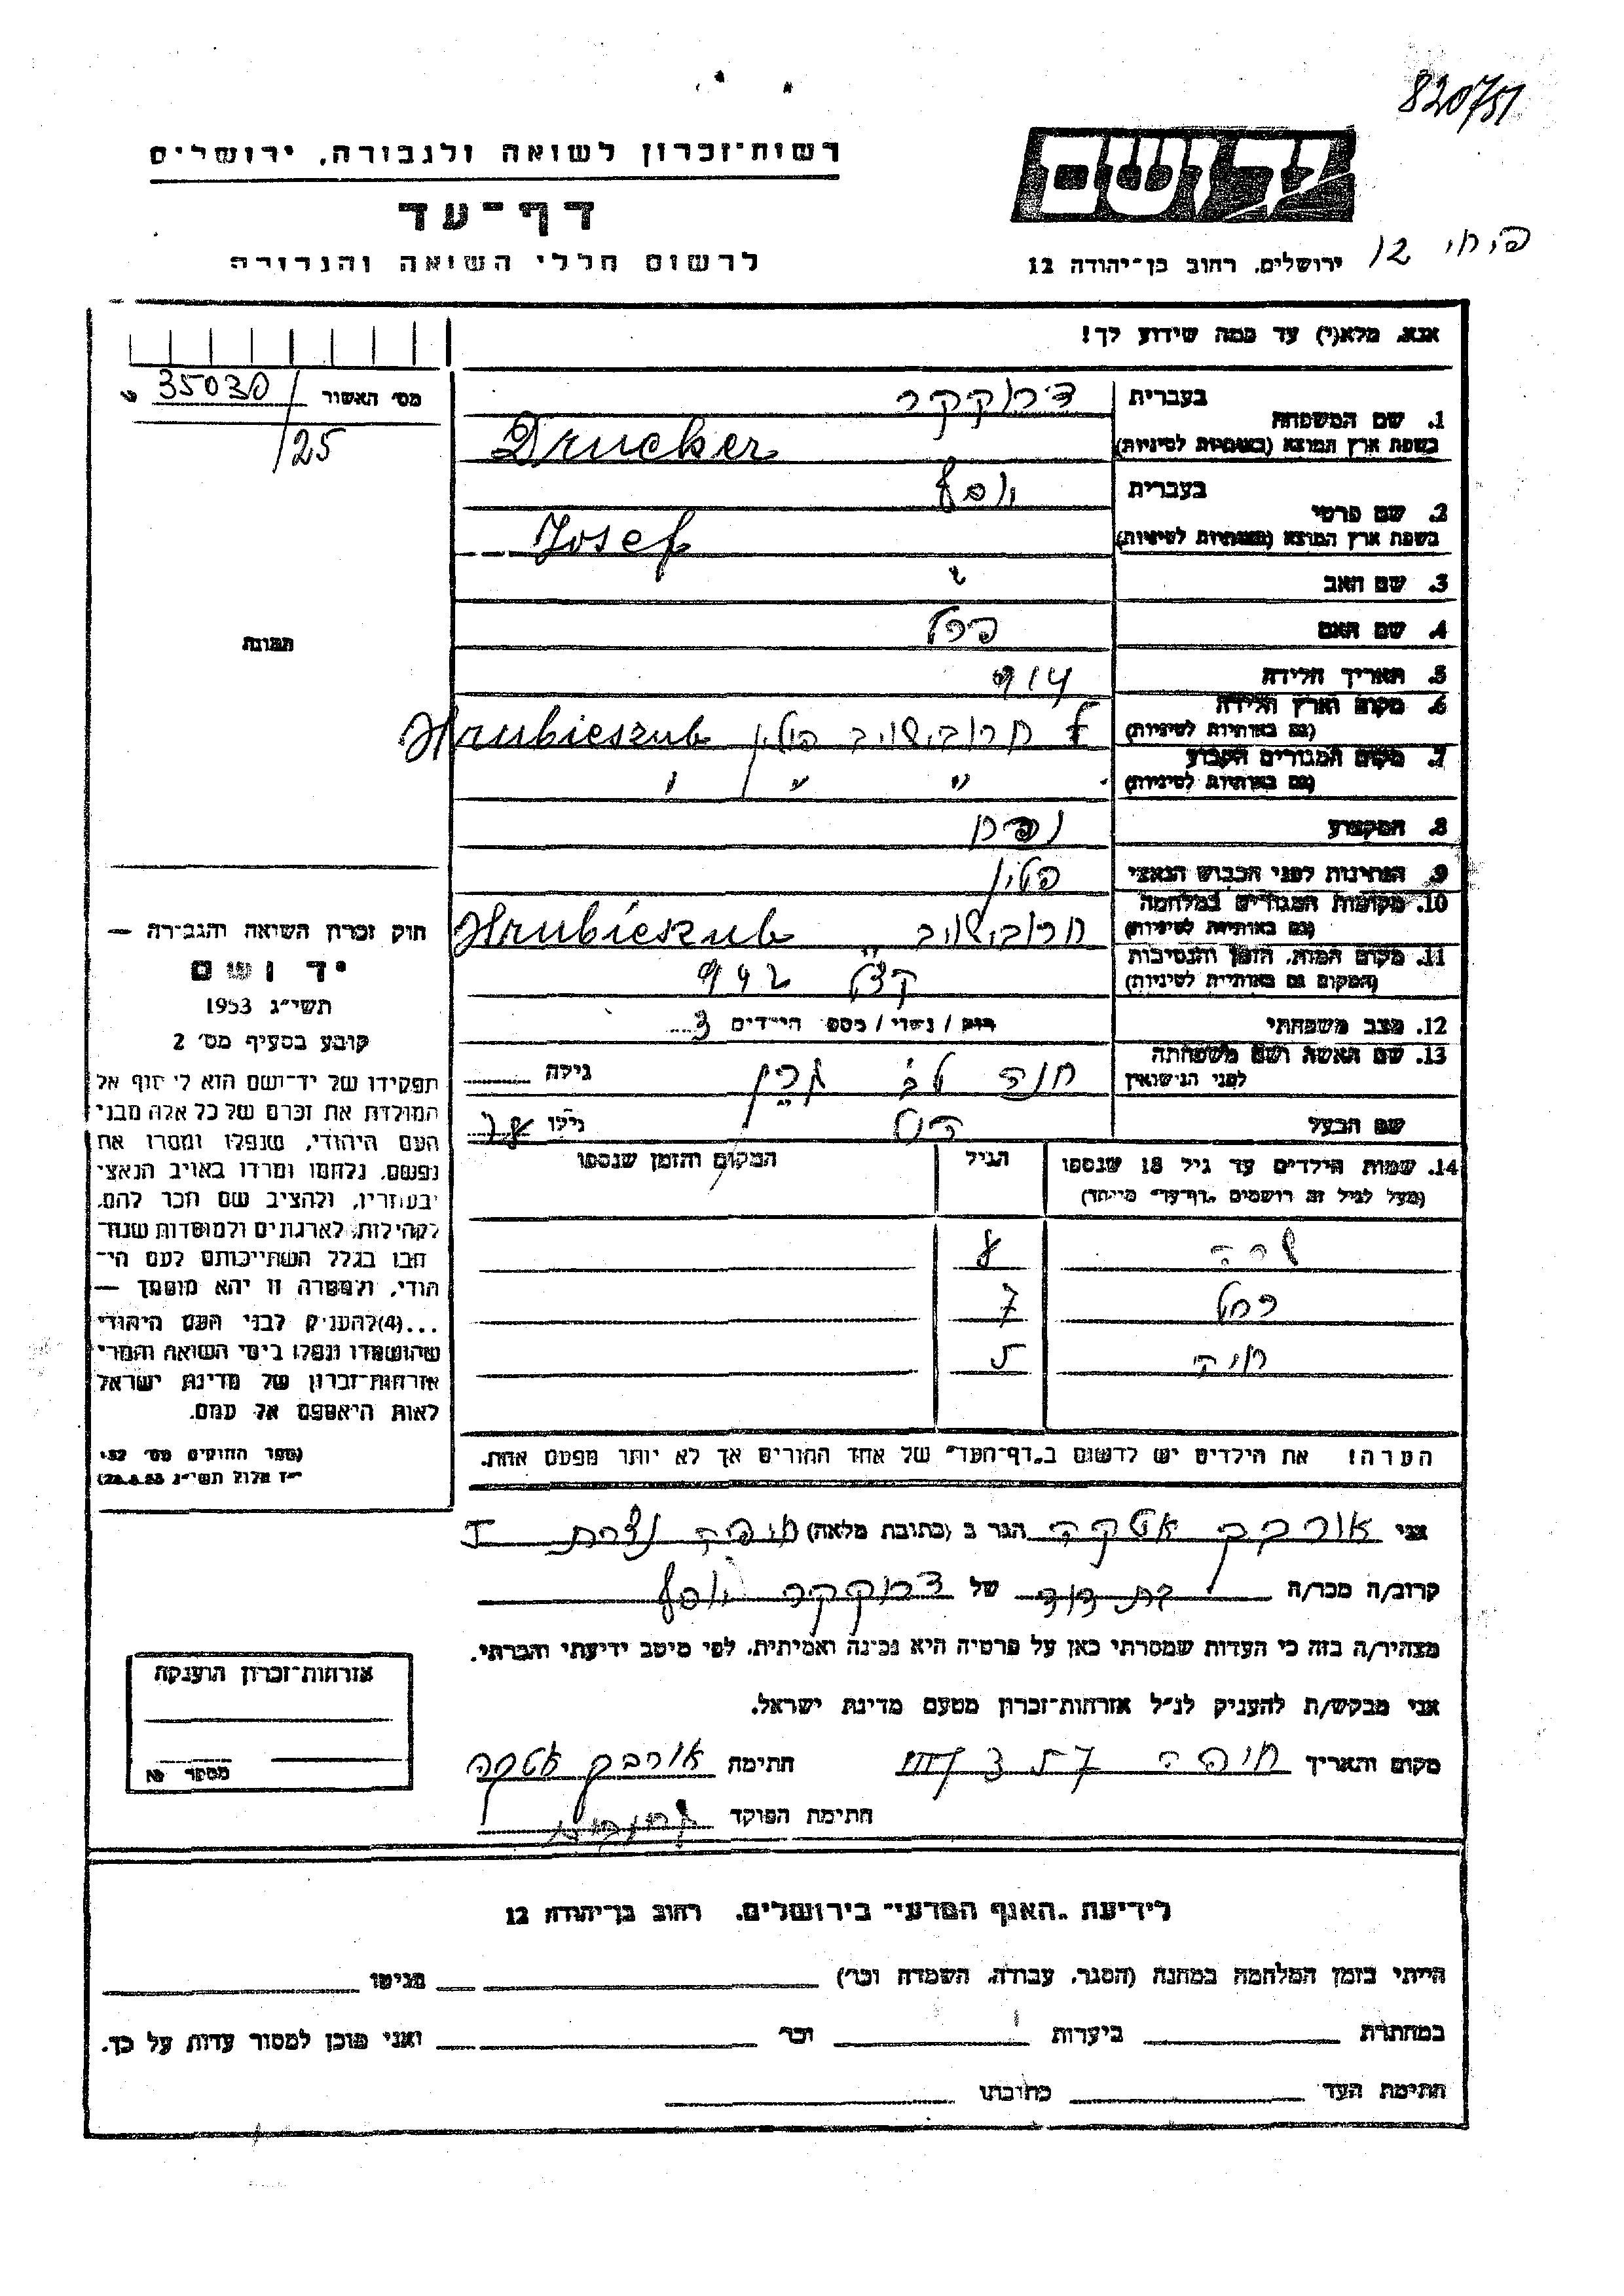 820751
רשות־זכרון לשואה ולגבורה, ירושלים
יד ושם
דף־עד
לרשום חללי השואה והגבורה
ירושלים, רחוב בן־יהודה 12
אנא, מלא(י) עד כמה שידוע לך!
מס׳ האשור 35030
/25
1. שם המשפחה בעברית דרוקקר
בשפת ארץ המוצא (באותיות לטיניות) Drucker
2. שם פרטי בעברית יוסף
בשפת ארץ המוצא (באותיות לטיניות) Josef
3. שם האב
4. שם האם פרל
תמונה
5. תאריך הלידה 914
6. מקום וארץ הלידה (גם באותיות לטיניות) חרובישוב פולין Hrubieszub
7. מקום המגורים הקבוע (גם באותיות לטיניות) " " "
8. המקצוע
9. הנתינות לפני הכבוש הנאצי פולין
10. מקומות המגורים במלחמה (גם באותיות לטיניות) חרובישוב Hrubieszub
11. מקום המות, הזמן והנסיבות (המקום גם באותיות לטיניות) קצל 942
12. מצב משפחתי רוק / נשוי / מספר הילדים 3
13. שם האשה ושם משפחתה לפני הנישואין חנה לב גילה
שם הבעל גילו
14. שמות הילדים עד גיל 18 שנספו
(מעל לגיל זה רושמים „דף־עד״ מיוחד)
הגיל
המקום והזמן שנספו
שרה
רחל 7
חיה 5
הערה! את הילדים יש לרשום ב„דף־העד״ של אחד ההורים אך לא יותר מפעם אחת.
חוק זכרון השואה והגבורה —
יד ושם
תשי״ג 1953
קובע בסעיף מס׳ 2
תפקידו של יד־ושם הוא לאסוף אל
המולדת את זכרם של כל אלה מבני
העם היהודי, שנפלו ומסרו את
נפשם, נלחמו ומרדו באויב הנאצי
ובעוזריו, ולהציב שם וזכר להם,
לקהילות, לארגונים ולמוסדות שנח־
רבו בגלל השתייכותם לעם הי־
הודי, ולמטרה זו יהא מוסמך —
...(4) להעניק לבני העם היהודי
שהושמדו ונפלו בימי השואה והמרי
אזרחות־זכרון של מדינת ישראל
לאות היאספם אל עמם.
(ספר החוקים מס׳ 132,
י״ז אלול תשי״ג 28.8.53)
אני אורבך אטקה הגר ב (כתובת מלאה) חיפה נצרת I
קרוב/ה מכר/ה בת דוד של דרוקקר יוסף
מצהיר/ה בזה כי העדות שמסרתי כאן על פרטיה היא נכונה ואמיתית, לפי מיטב ידיעתי והכרתי.
אני מבקש/ת להעניק לנ״ל אזרחות־זכרון מטעם מדינת ישראל.
מקום ותאריך חיפה חתימה אורבך אטקה
חתימת הפוקד
אזרחות־זכרון הוענקה
מספר
לידיעת „האגף המדעי״ בירושלים, רחוב בן־יהודה 12
הייתי בזמן המלחמה במחנה (הסגר, עבודה, השמדה וכו׳) בגיטו
במחתרת ביערות וכו׳ ואני מוכן למסור עדות על כך.
חתימת העד כתובתו